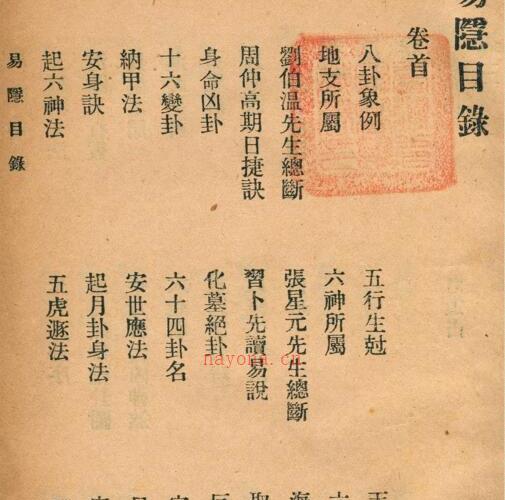 易隱目錄
卷首
八卦象例
五行生尅
地支所屬
六神所屬
劉伯溫先生總斷
張星元先生總斷
周仲高期日捷訣
習卜先讀易說
身命凶卦
化墓絕卦
十六變卦
六十四卦名
納甲法
安世應法
安身訣
起月卦身法
起六神法
五虎遯法
易隱目錄
nayona.cn